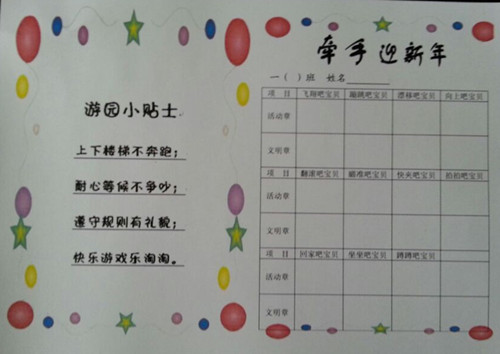 游园小贴士
上下楼梯不奔跑;
耐心等候不争吵;
遵守规则有礼貌;
快乐游戏乐淘淘。
牵手迎新年
一( )班 姓名
项 目 飞翔吧宝贝 蹦跳吧宝贝 漂移吧宝贝 向上吧宝贝
活动章
文明章
项 目 翻滚吧宝贝 瞄准吧宝贝 快夹吧宝贝 拍拍吧宝贝
活动章
文明章
项 目 回家吧宝贝 坐坐吧宝贝 蹲蹲吧宝贝
活动章
文明章